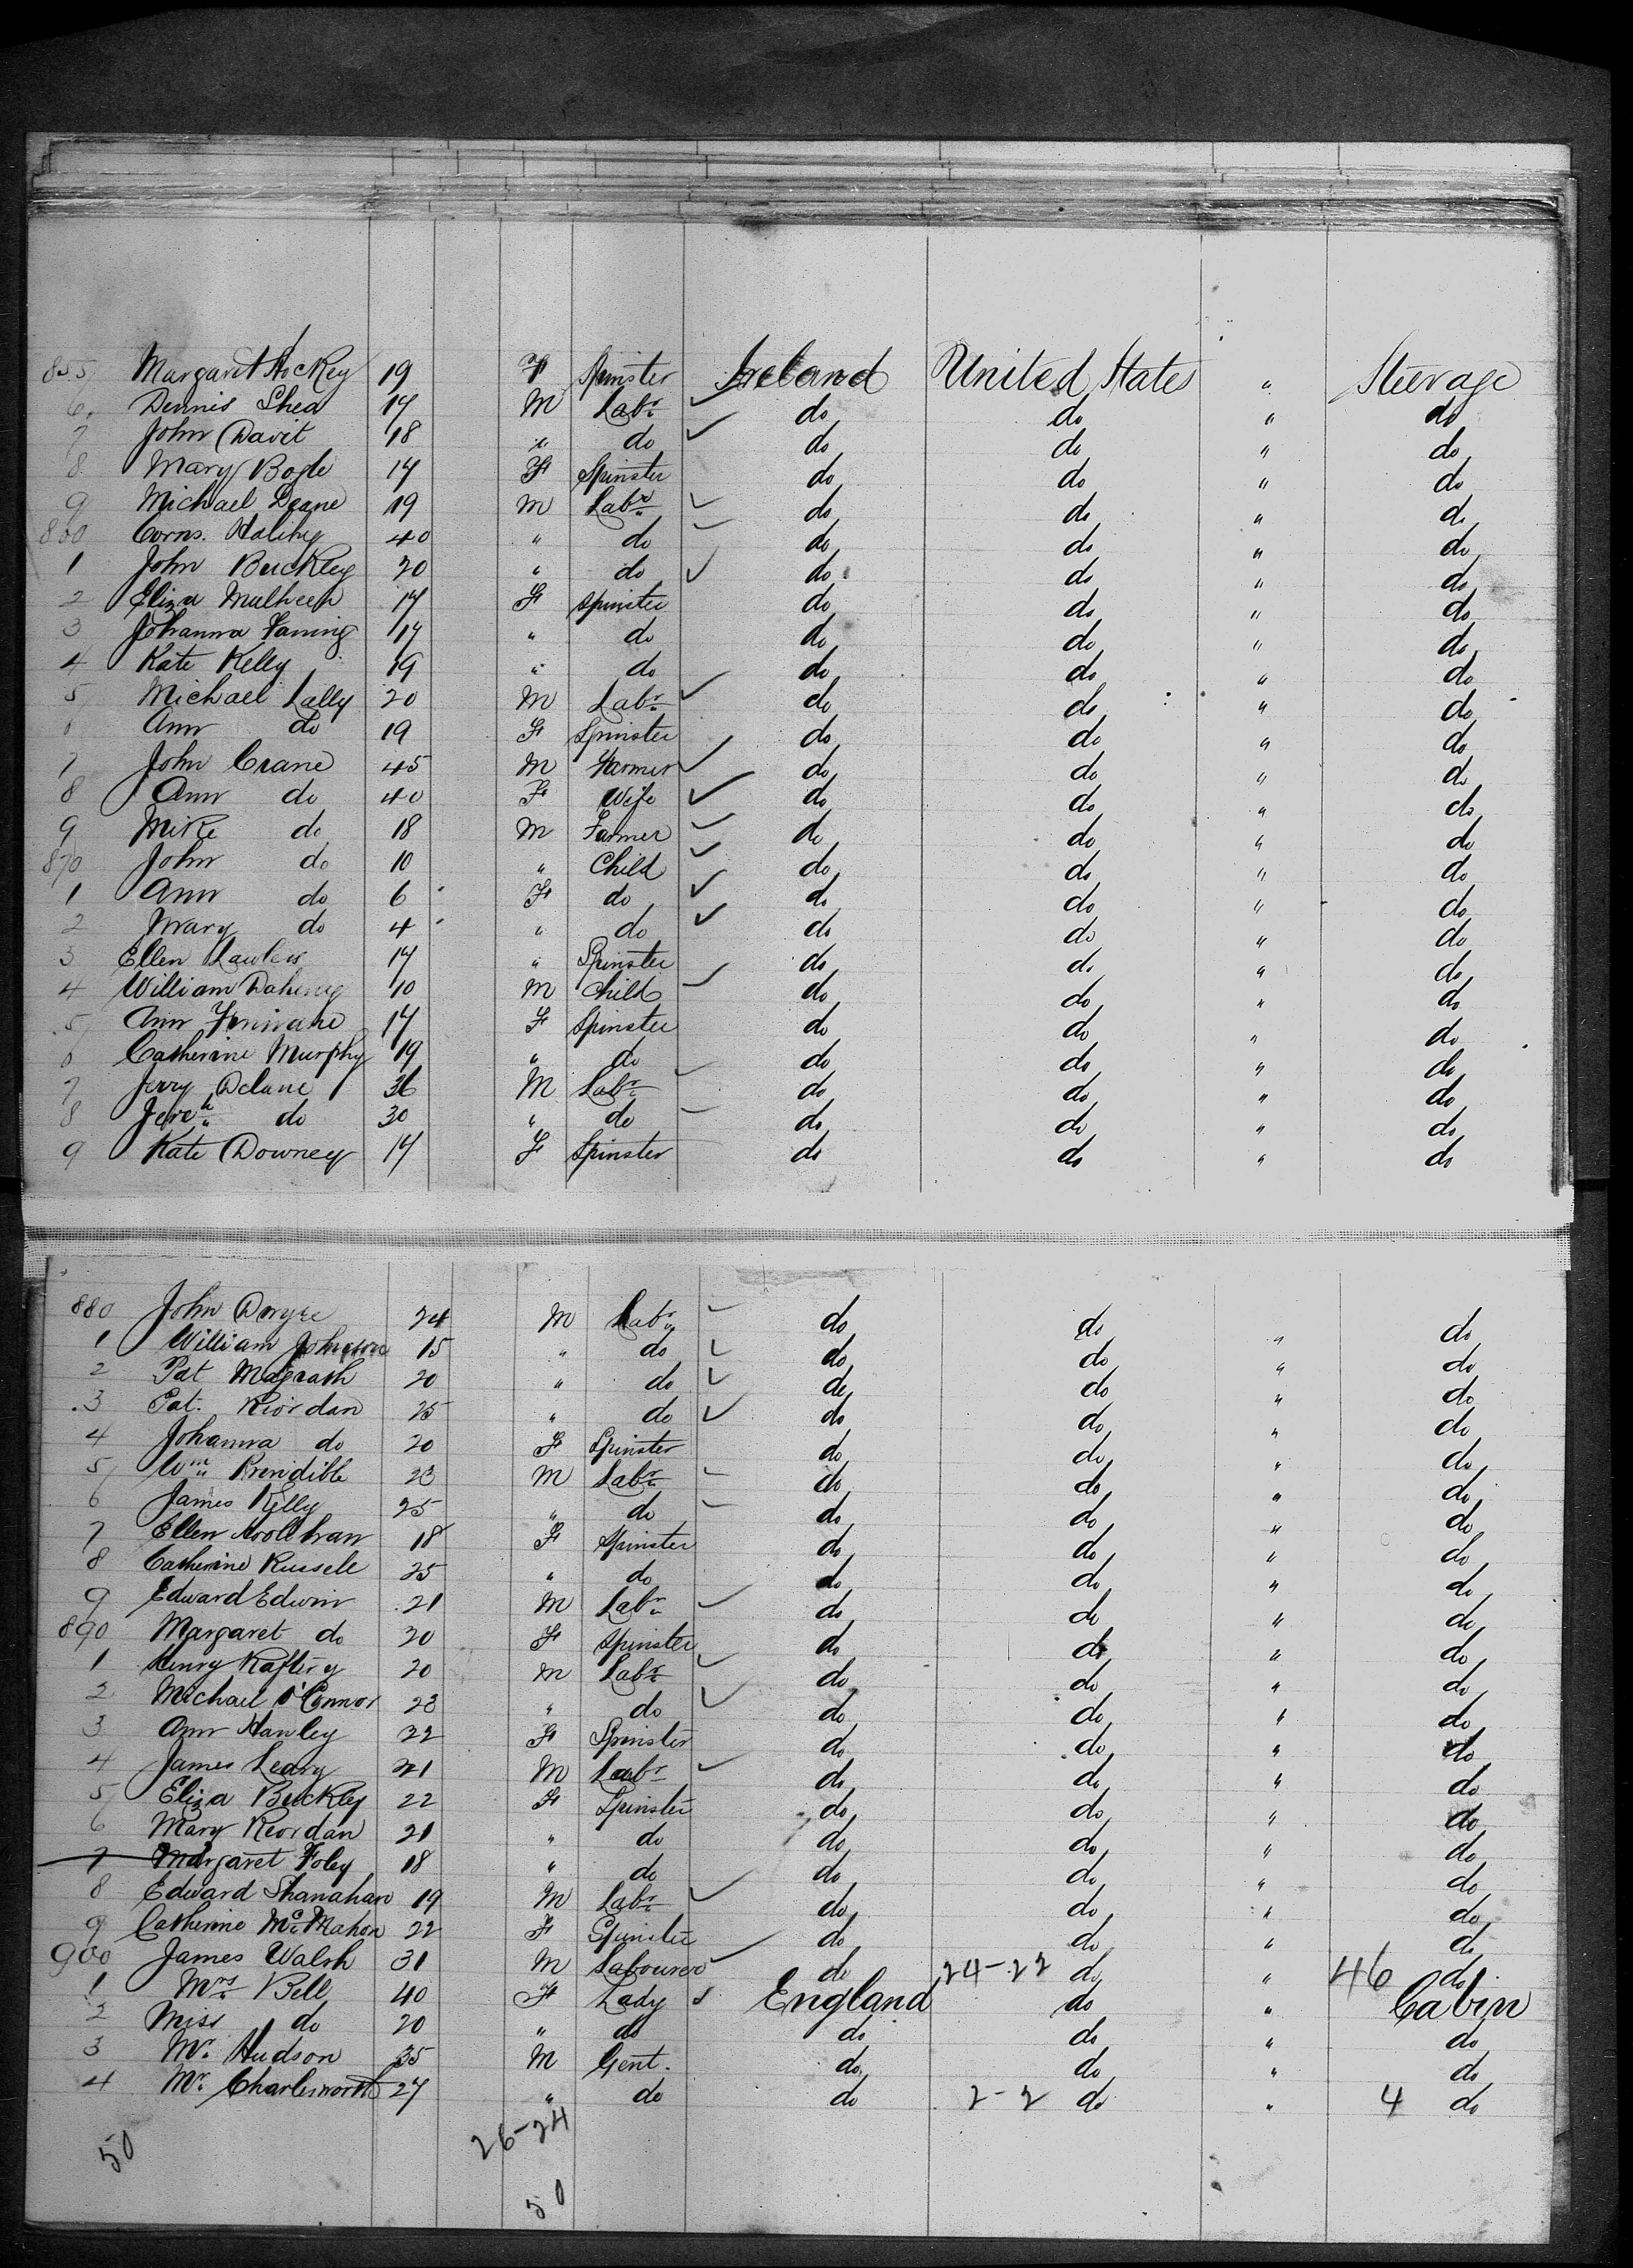 855 Margaret Hickey 19 F Spinster Ireland United States " Steerage
6 Dennis Shea 17 M Labr. do do " do
7 John Davit 18 " do do do " do
8 Mary Bogle 17 F Spinster do do " do
9 Michael Deane 19 M Labr. do do " do
860 Corns. Halihy 40 " do do do " do
1 John Buckley 20 " do do do " do
2 Eliza Mulheen 17 F Spinster do do " do
3 Johanna Faning 17 " do do do " do
4 Kate Kelly 19 " do do do " do
5 Michael Lally 20 M Labr. do do " do
6 Ann do 19 F Spinster do do " do
7 John Crane 45 M Farmer do do " do
8 Ann do 40 F Wife do do " do
9 Mike do 18 M Farmer do do " do
870 John do 10 " Child do do " do
1 Ann do 6 F do do do " do
2 Mary do 4 " do do do " do
3 Ellen Lawless 17 " Spinster do do " do
4 William Daheny 10 M Child do do " do
5 Ann Finivane 17 F Spinster do do " do
6 Catherine Murphy 19 " do do do " do
7 Jerry Delane 36 M Labr. do do " do
8 Jereh. do 30 " do do do " do
9 Kate Downey 17 F Spinster do do " do
880 John Dwyre 24 M Labr. do do " do
1 William Johnson 15 " do do do " do
2 Pat Magrath 20 " do do do " do
3 Pat. Riordan 25 " do do do " do
4 Johanna do 20 F Spinster do do " do
5 Wm. Prendible 23 M Labr. do do " do
6 James Kelly 25 " do do do " do
7 Ellen 18 F Spinster do do " do
8 Catherine Russell 25 " do do do " do
9 Edward Edwin 21 M Labr. do do " do
890 Margaret do 20 F Spinster do do " do
1 Henry Raftery 20 M Labr. do do " do
2 Michael O'Connor 23 " do do do " do
3 Ann Hanley 22 F Spinster do do " do
4 James Leary 21 M Labr. do do " do
5 Eliza Buckley 22 F Spinster do do " do
6 Mary Reordan 21 " do do do " do
7 Margaret Foley 18 " do do do " do
8 Edward Shanahan 19 M Labr. do do " do
9 Catherine McMahon 22 F Spinster do do " do
900 James Walsh 31 M Labourer do 24-22 do " 46 do
1 Mrs. Bell 40 F Lady England do " Cabin
2 Miss do 20 " do do do " do
3 Mr. Hudson 35 M Gent. do do " do
4 Mr. Charlesworth 27 " do do 2-2 do " 4 do
50 26-24
50